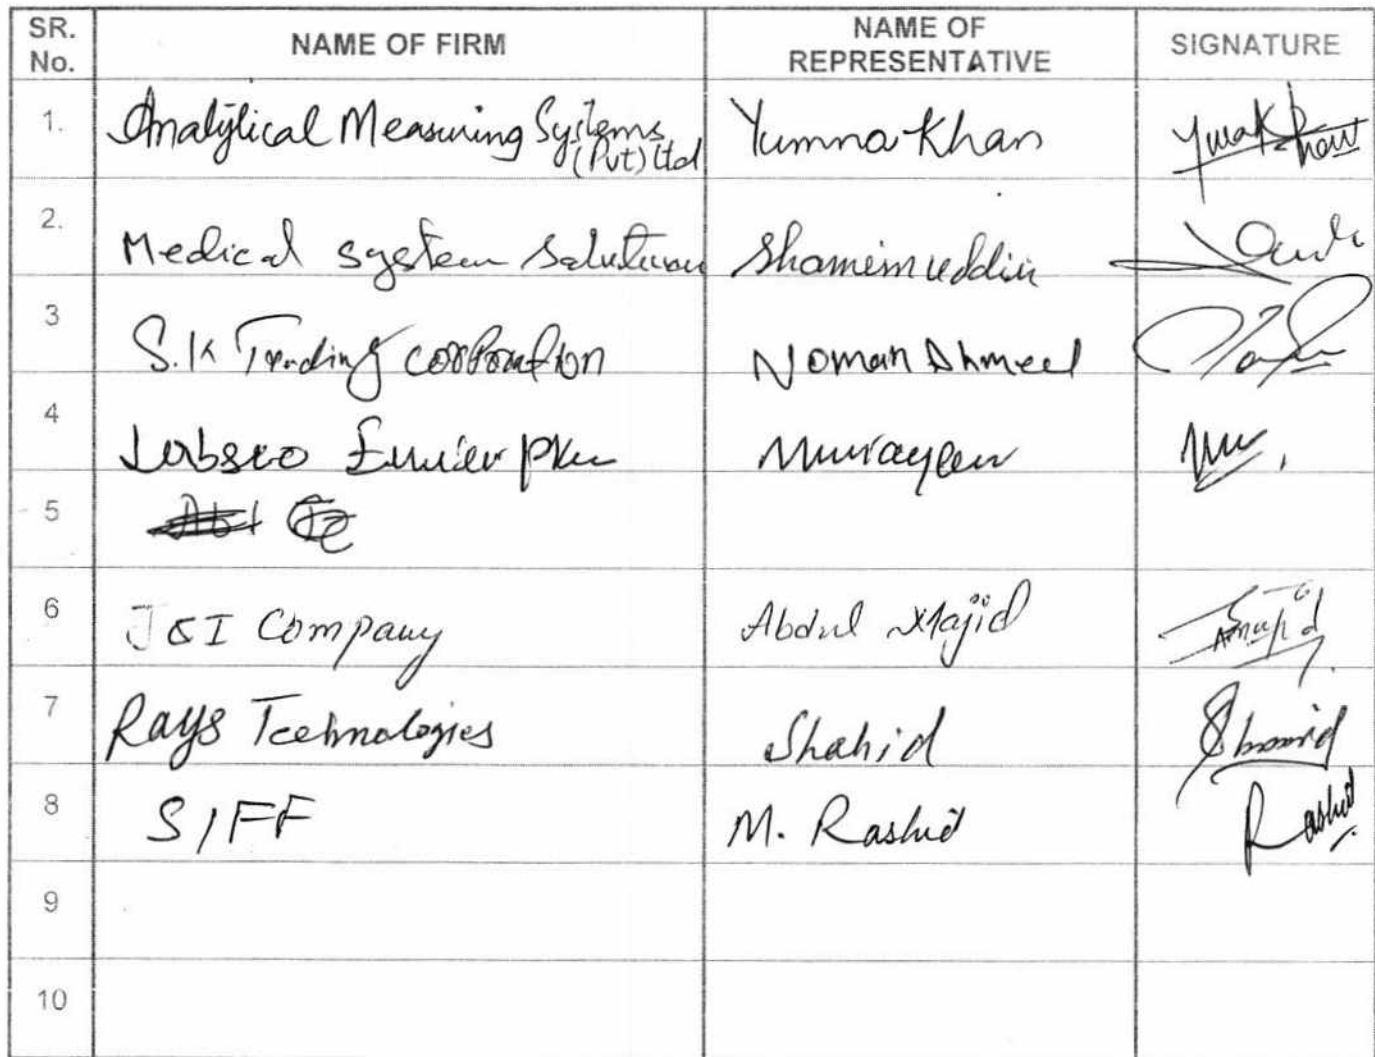 SR. No. NAME OF FIRM NAME OF REPRESENTATIVE SIGNATURE
1. Analytical Measuring Systems (Pvt) Ltd Yumna Khan
2. Medical system Solution Shamimuddin
3 S.K Trading corporation Noman Ahmed
4
5
6 J&I Company Abdul Majid
7 Rays Technologies Shahid Shahid
8 S/FF M. Rashid Rashid
9
10